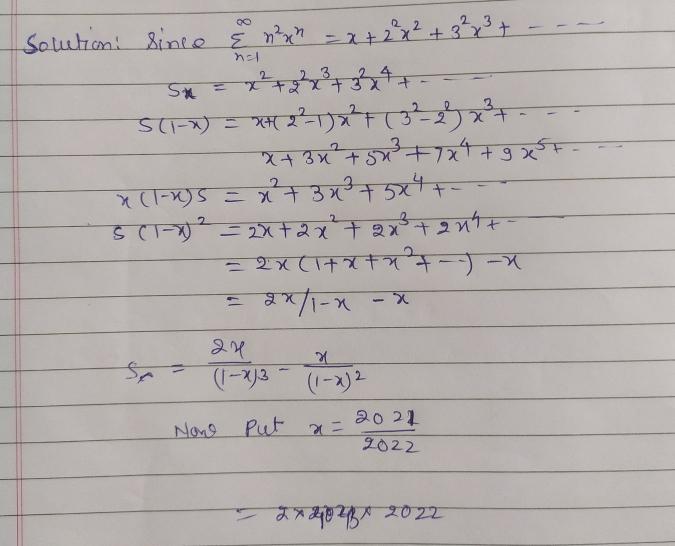 Solution: Since ∑_{n=1}^{∞} n²xⁿ = x + 2²x² + 3²x³ + - - - -
Sx = x² + 2²x³ + 3²x⁴ + - - - -
S(1-x) = x+(2²-1)x² + (3²-2²)x³ + - - -
x + 3x² + 5x³ + 7x⁴ + 9x⁵ + - - -
x(1-x)S = x² + 3x³ + 5x⁴ + - - -
S(1-x)² = 2x + 2x² + 2x³ + 2x⁴ + - - -
= 2x(1+x+x²+ - - ) - x
= 2x/1-x - x
S = 2x/(1-x)3 - x/(1-x)2
Now Put x = 2021/2022
= 2× × 2022